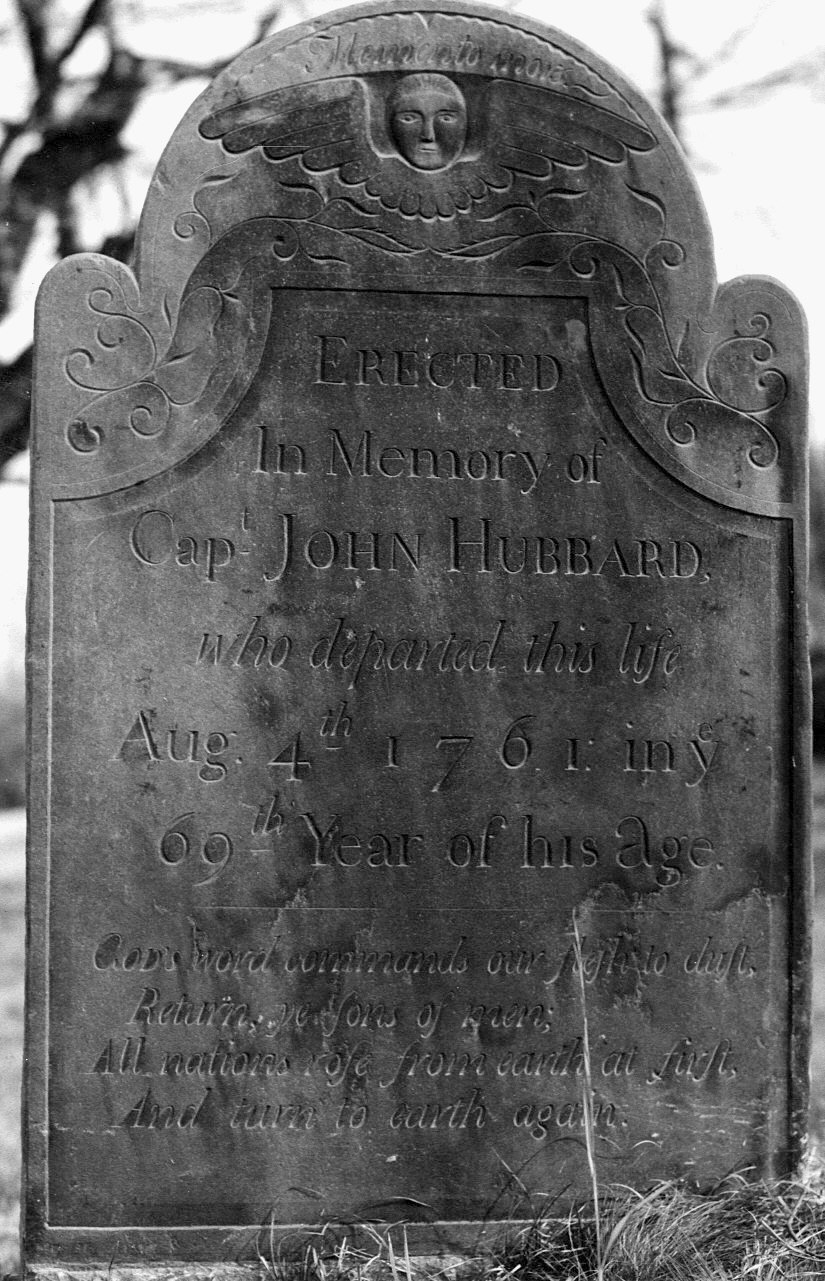 Memento mori
ERECTED
In Memory of
Capt. JOHN HUBBARD,
who departed this life
Aug. 4th 1761. in ye
69th Year of his Age.
GOD's word commands our fleſh to duſt,
Return, ye ſons of men;
All nations roſe from earth at firſt,
And turn to earth again.